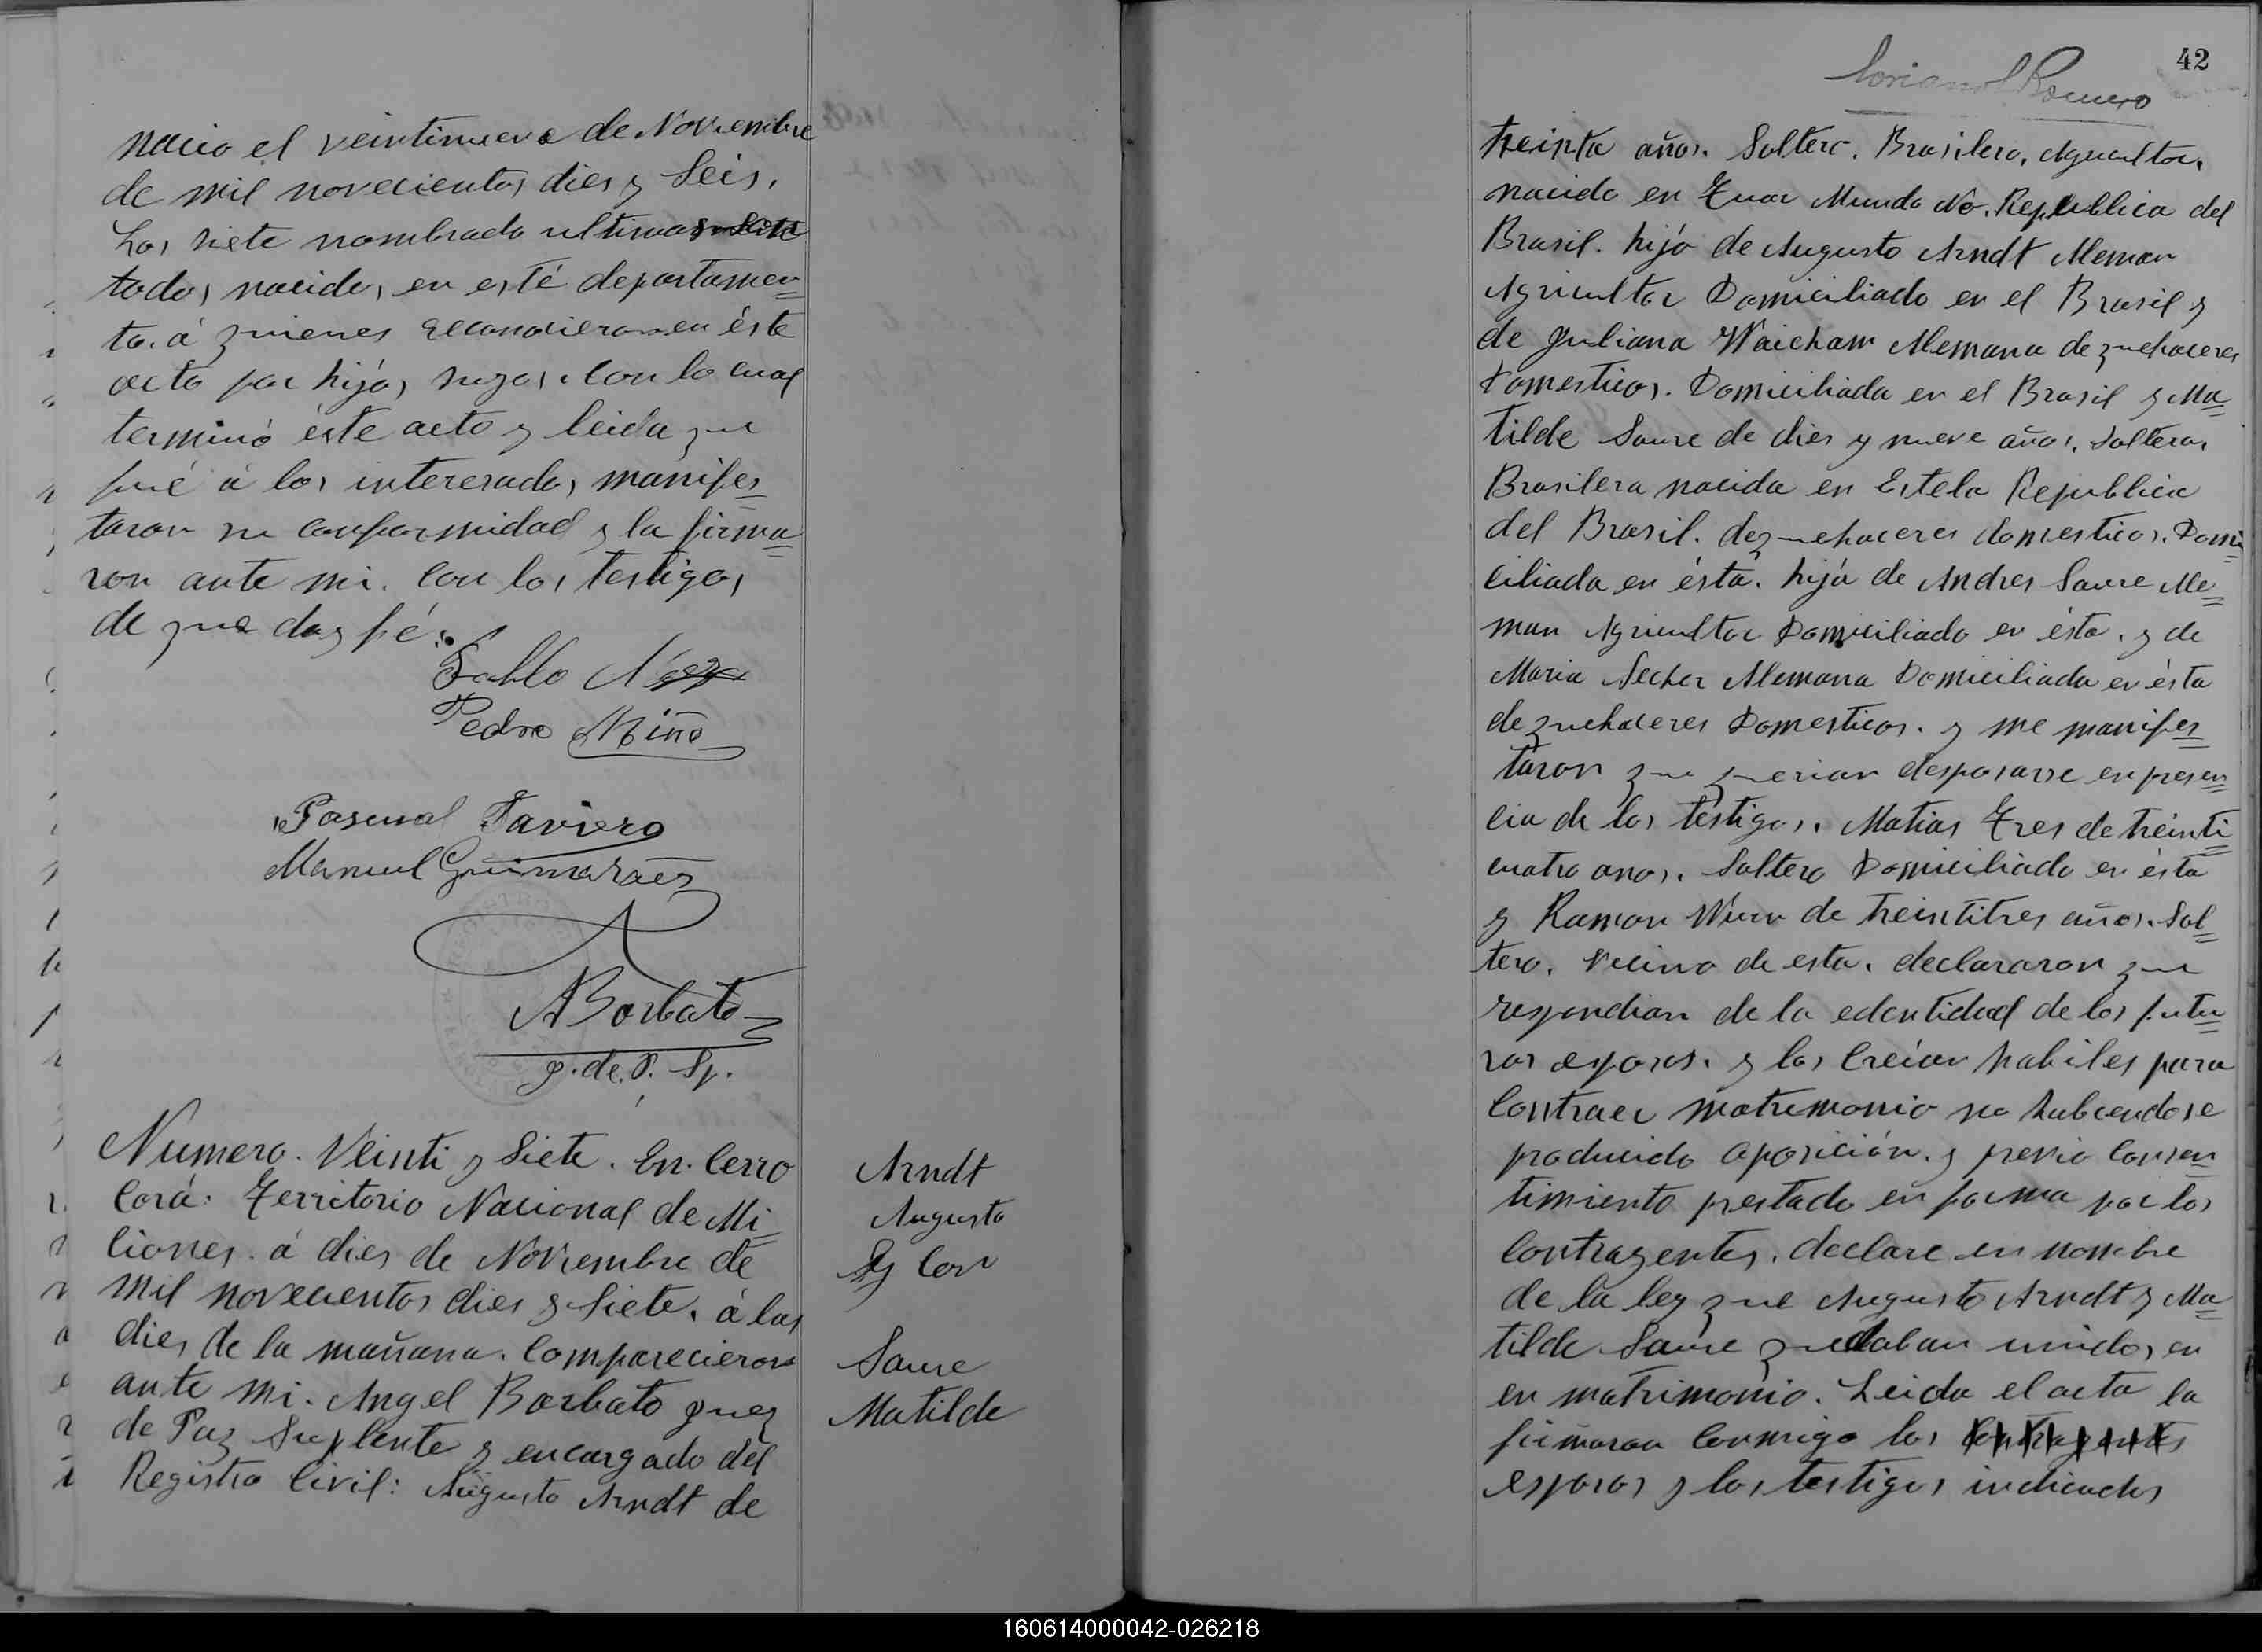 nacio el veintinueve de Noviembre
de mil novecientos dies y Seis.
Los siete nombrado ultimos
todos nacidos en esté departamen=
to. á quienes reconocieron en éste
acto por hijos suyos. Con lo cual
terminó éste acto y leida que
fué á los interesados manifes=
taron su conformidad y la firma=
ron ante mi. Con los testigos
de que doy fé:
Pablo
Pedro Miño
Pascual Taviero
Manuel Guimaraes
ABarbato
J. de. P. Sp.
Numero. Veinti y Siete. En. Cerro
Corá: Territorio Nacional de Mi=
ciones. á dies de Noviembre de
mil novecientos dies y siete. á las
dies de la mañana. Comparecieron
ante mi. Angel Barbato Juez
de Paz Suplente y encargado del
Registro Civil: Augusto Arndt de
Arndt
Augusto
y Con
Saure
Matilde
42
Romero
treinta años. Soltero. Brasilero. Agricultor.
nacido en Mundo No. Republica del
Brasil. hijo de Augusto Arndt Aleman
Agricultor Domiciliado en el Brasil y
de Juliana Waicham Alemana de quehaceres
Domesticos. Domiciliada en el Brasil y Ma=
tilde Saure de dies y nueve años. Soltera.
Brasilera nacida en Estela Republica
del Brasil. de quehaceres domesticos. Domi=
ciliada en ésta. hija de Andres Saure Ale=
man Agricultor Domiciliado en ésta. y de
Maria Secher Alemana Domiciliada en ésta
de quehaceres Domesticos. y me manifes=
taron que querian desposarse en presen=
cia de los testigos. Matias Tres de treinti=
cuatro anos. Soltero Domiciliado en ésta
y Ramon Wurn de treintitres años. Sol=
tero. Vecino de esta. declararon que
respondian de la edentidad de los futu=
ros esposos. y los creian habiles para
Contraer matremonio no habiendose
producido oposición. y previo Consen=
timiento prestado en forma por los
Contrayentes. declare en nombre
de la ley que Augusto Arndt y Ma=
tilde Saure quedaban unidos en
en matrimonio. Leida el acta la
firmaron Conmigo los contrayentes
esposos y los testigos indicados
160614000042-026218